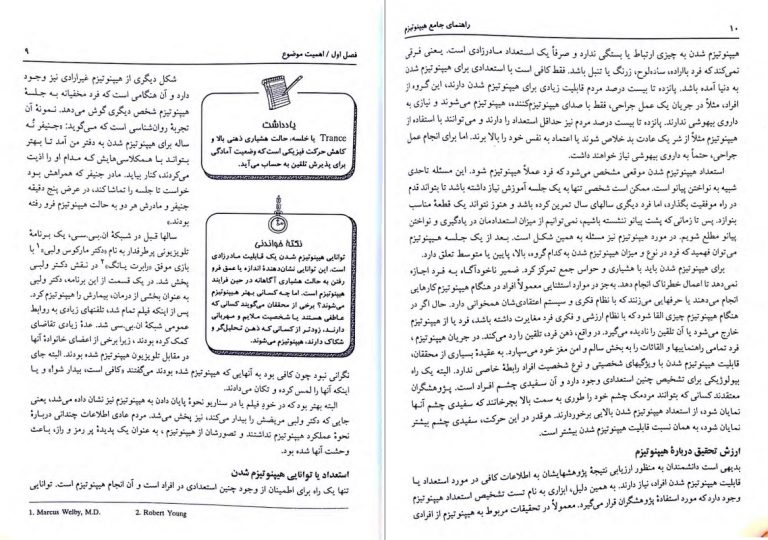 فصل اول / اهمیت موضوع
۹
شکل دیگری از هیپنوتیزم غیرارادی نیز وجود
دارد و آن هنگامی است که فرد مخفیانه به جلسهٔ
هیپنوتیزم شخص دیگری گوش می‌دهد. نمونهٔ آن
تجربهٔ روان‌شناسی است که می‌گوید: «جنیفر نُه
ساله برای هیپنوتیزم شدن به دفتر من آمد تا بهتر
بتواند با همکلاسی‌هایش که مدام او را اذیت
می‌کردند، کنار بیاید. مادر جنیفر که همراهش بود
خواست تا جلسه را تماشا کند، در عرض پنج دقیقه
جنیفر و مادرش هر دو به حالت هیپنوتیزم فرو رفته
بودند.»
سالها قبل در شبکهٔ ان.بی.سی، یک برنامهٔ
تلویزیونی پرطرفدار به نام «دکتر مارکوس ولبی»۱ با
بازی موفق «رابرت یانگ»۲ در نقش دکتر ولبی
پخش شد. در یک قسمت از این برنامه، دکتر ولبی
به عنوان بخشی از درمان، بیمارش را هیپنوتیزم کرد.
پس از اینکه فیلم تمام شد، تلفنهای زیادی به روابط
عمومی شبکهٔ ان.بی.سی شد. عدهٔ زیادی تقاضای
کمک کرده بودند، زیرا برخی از اعضای خانوادهٔ آنها
در مقابل تلویزیون هیپنوتیزم شده بودند. البته جای
نگرانی نبود چون کافی بود به آنهایی که هیپنوتیزم شده بودند می‌گفتند «کافی است، بیدار شو!» و یا
اینکه آنها را لمس کرده و تکان می‌دادند.
البته بهتر بود که در خود فیلم یا در سناریو نحوهٔ پایان دادن به هیپنوتیزم نیز نشان داده می‌شد، یعنی
جایی که دکتر ولبی مریضش را بیدار می‌کند، نیز پخش می‌شد. مردم عادی اطلاعات چندانی دربارهٔ
نحوهٔ عملکرد هیپنوتیزم نداشتند و تصورشان از هیپنوتیزم ، به عنوان یک پدیدهٔ پر رمز و راز، باعث
وحشت آنها شده بود.
استعداد یا توانایی هیپنوتیزم شدن
تنها یک راه برای اطمینان از وجود چنین استعدادی در افراد است و آن انجام هیپنوتیزم است. توانایی
1. Marcus Welby, M.D. 2. Robert Young
یادداشت
Trance یا خلسه، حالت هشیاری ذهنی بالا و
کاهش حرکت فیزیکی است که وضعیت آمادگی
برای پذیرش تلقین به حساب می‌آید.
نکتهٔ خواندنی
توانایی هیپنوتیزم شدن یک قابلیت مادرزادی
است. این توانایی نشان‌دهندهٔ اندازه یا عمق فرو
رفتن به حالت هشیاری آگاهانه در حین فرایند
هیپنوتیزم است. اما چه کسانی بهتر هیپنوتیزم
می‌شوند؟ برخی از محققان می‌گویند کسانی که
عاطفی هستند یا شخصیت ملایم و مهربانی
دارند، زودتر از کسانی که ذهن تحلیل‌گر و
شکاک دارند، هیپنوتیزم می‌شوند.
۱۰
راهنمای جامع هیپنوتیزم
هیپنوتیزم شدن به چیزی ارتباط یا بستگی ندارد و صرفاً یک استعداد مادرزادی است. یعنی فرقی
نمی‌کند که فرد بااراده، ساده‌لوح، زرنگ یا تنبل باشد. فقط کافی است با استعدادی برای هیپنوتیزم شدن
به دنیا آمده باشد. پانزده تا بیست درصد مردم قابلیت زیادی برای هیپنوتیزم شدن دارند، این گروه از
افراد، مثلاً در جریان یک عمل جراحی، فقط با صدای هیپنوتیزم‌کننده، هیپنوتیزم می‌شوند و نیازی به
داروی بیهوشی ندارند. پانزده تا بیست درصد مردم نیز حداقل استعداد را دارند و می‌توانند با استفاده از
هیپنوتیزم مثلاً از شر یک عادت بد خلاص شوند یا اعتماد به نفس خود را بالا برند. اما برای انجام عمل
جراحی، حتماً به داروی بیهوشی نیاز خواهند داشت.
استعداد هیپنوتیزم شدن موقعی مشخص می‌شود که فرد عملاً هیپنوتیزم شود. این مسئله تاحدی
شبیه به نواختن پیانو است. ممکن است شخصی تنها به یک جلسه آموزش نیاز داشته باشد تا بتواند قدم
در راه موفقیت بگذارد، اما فرد دیگری سالهای سال تمرین کرده باشد و هنوز نتواند یک قطعهٔ مناسب
بنوازد. پس تا زمانی که پشت پیانو ننشسته باشیم، نمی‌توانیم از میزان استعدادمان در یادگیری و نواختن
پیانو مطلع شویم. در مورد هیپنوتیزم نیز مسئله به همین شکل است. بعد از یک جلسه هیپنوتیزم
می‌توان فهمید که فرد در نوع و میزان هیپنوتیزم شدن به کدام گروه بالا، پایین یا متوسط تعلق دارد.
برای هیپنوتیزم شدن باید با هشیاری و حواس جمع تمرکز کرد. ضمیر ناخودآگاه به فرد اجازه
نمی‌دهد تا اعمال خطرناک انجام دهد. به‌جز در موارد استثنایی معمولاً افراد در هنگام هیپنوتیزم کارهایی
انجام می‌دهند یا حرفهایی می‌زنند که با نظام فکری و سیستم اعتقادی‌شان همخوانی دارد. حال اگر در
هنگام هیپنوتیزم چیزی القا شود که با نظام ارزشی و فکری فرد مغایرت داشته باشد، فرد یا از هیپنوتیزم
خارج می‌شود یا آن تلقین را نادیده می‌گیرد. در واقع، ذهن فرد، تلقین را رد می‌کند. در جریان هیپنوتیزم ،
فرد تمامی راهنماییها و القائات را به بخش سالم و امن مغز خود می‌سپارد. به عقیدهٔ بسیاری از محققان،
قابلیت هیپنوتیزم شدن با ویژگیهای شخصیتی و نوع شخصیت افراد رابطهٔ خاصی ندارد. البته یک راه
بیولوژیکی برای تشخیص چنین استعدادی وجود دارد و آن سفیدی چشم افراد است. پژوهشگران
معتقدند کسانی که بتوانند مردمک چشم خود را طوری به سمت بالا بچرخانند که سفیدی چشم آنها
نمایان شود، از استعداد هیپنوتیزم شدن بالایی برخوردارند. هرقدر در این حرکت، سفیدی چشم بیشتر
نمایان شود، به همان نسبت قابلیت هیپنوتیزم شدن بیشتر است.
ارزش تحقیق دربارهٔ هیپنوتیزم
بدیهی است دانشمندان به منظور ارزیابی نتیجهٔ پژوهشهایشان به اطلاعات کافی در مورد استعداد یا
قابلیت هیپنوتیزم شدن افراد، نیاز دارند. به همین دلیل، ابزاری به نام تست تشخیص استعداد هیپنوتیزم
وجود دارد که مورد استفادهٔ پژوهشگران قرار می‌گیرد. معمولاً در تحقیقات مربوط به هیپنوتیزم از افرادی